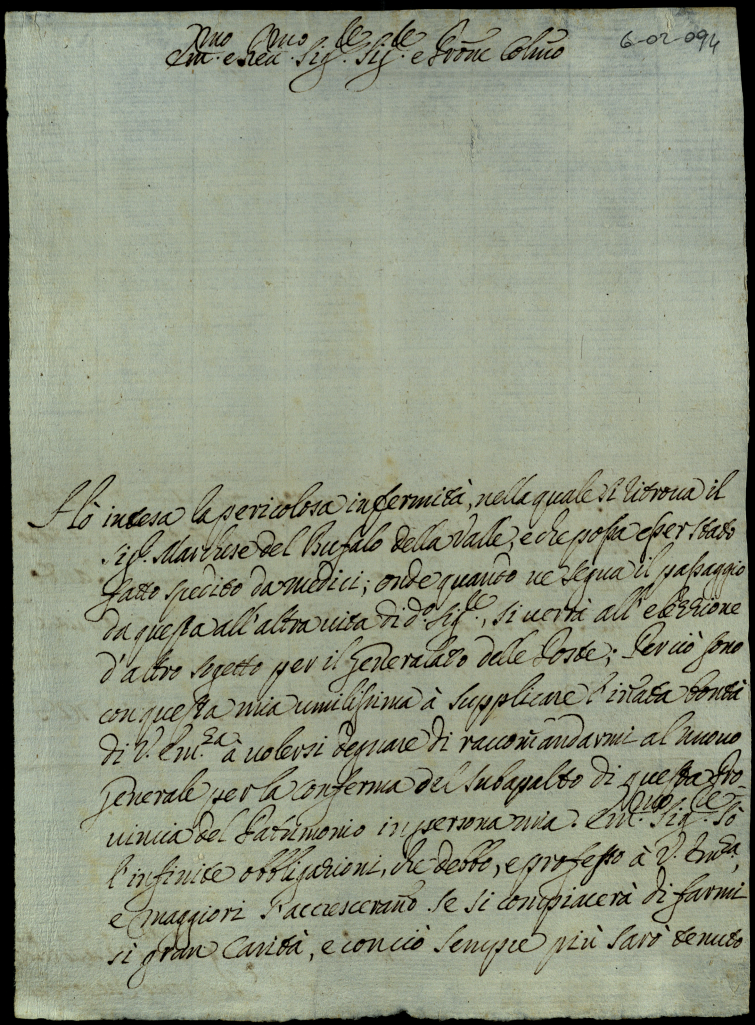 Em.mo e Reu.mo Sig.re Sig.re e Prone Colmo
6-02-094
Hò intesa la pericolosa infermità, nella quale si ritroua il
Sig.r Marchese del Bufalo della Valle, e che possa esser stato
fatto spedito da medici; onde quando ne segua il passaggio
da questa all'altra uita di d.o Sig.re, si uerrà all'elezzione
d'altro sogetto per il Generalato delle Poste; Perciò sono
con questa mia umilissima à supplicare l'inata bontà
di V. Em.za à uolersi degnare di raccomandarmi al nuouo
Generale per la conferma del subapalto di questa Pro-
uincia del Patrimonio in persona mia. Em.mo Sig.re Sò
l'infinite obbligazioni, che debbo, e professo à V. Em.za,
e maggiori s'accresceranno se si compiacerà di farmi
sì gran Carità, e con ciò sempre più sarò tenuto